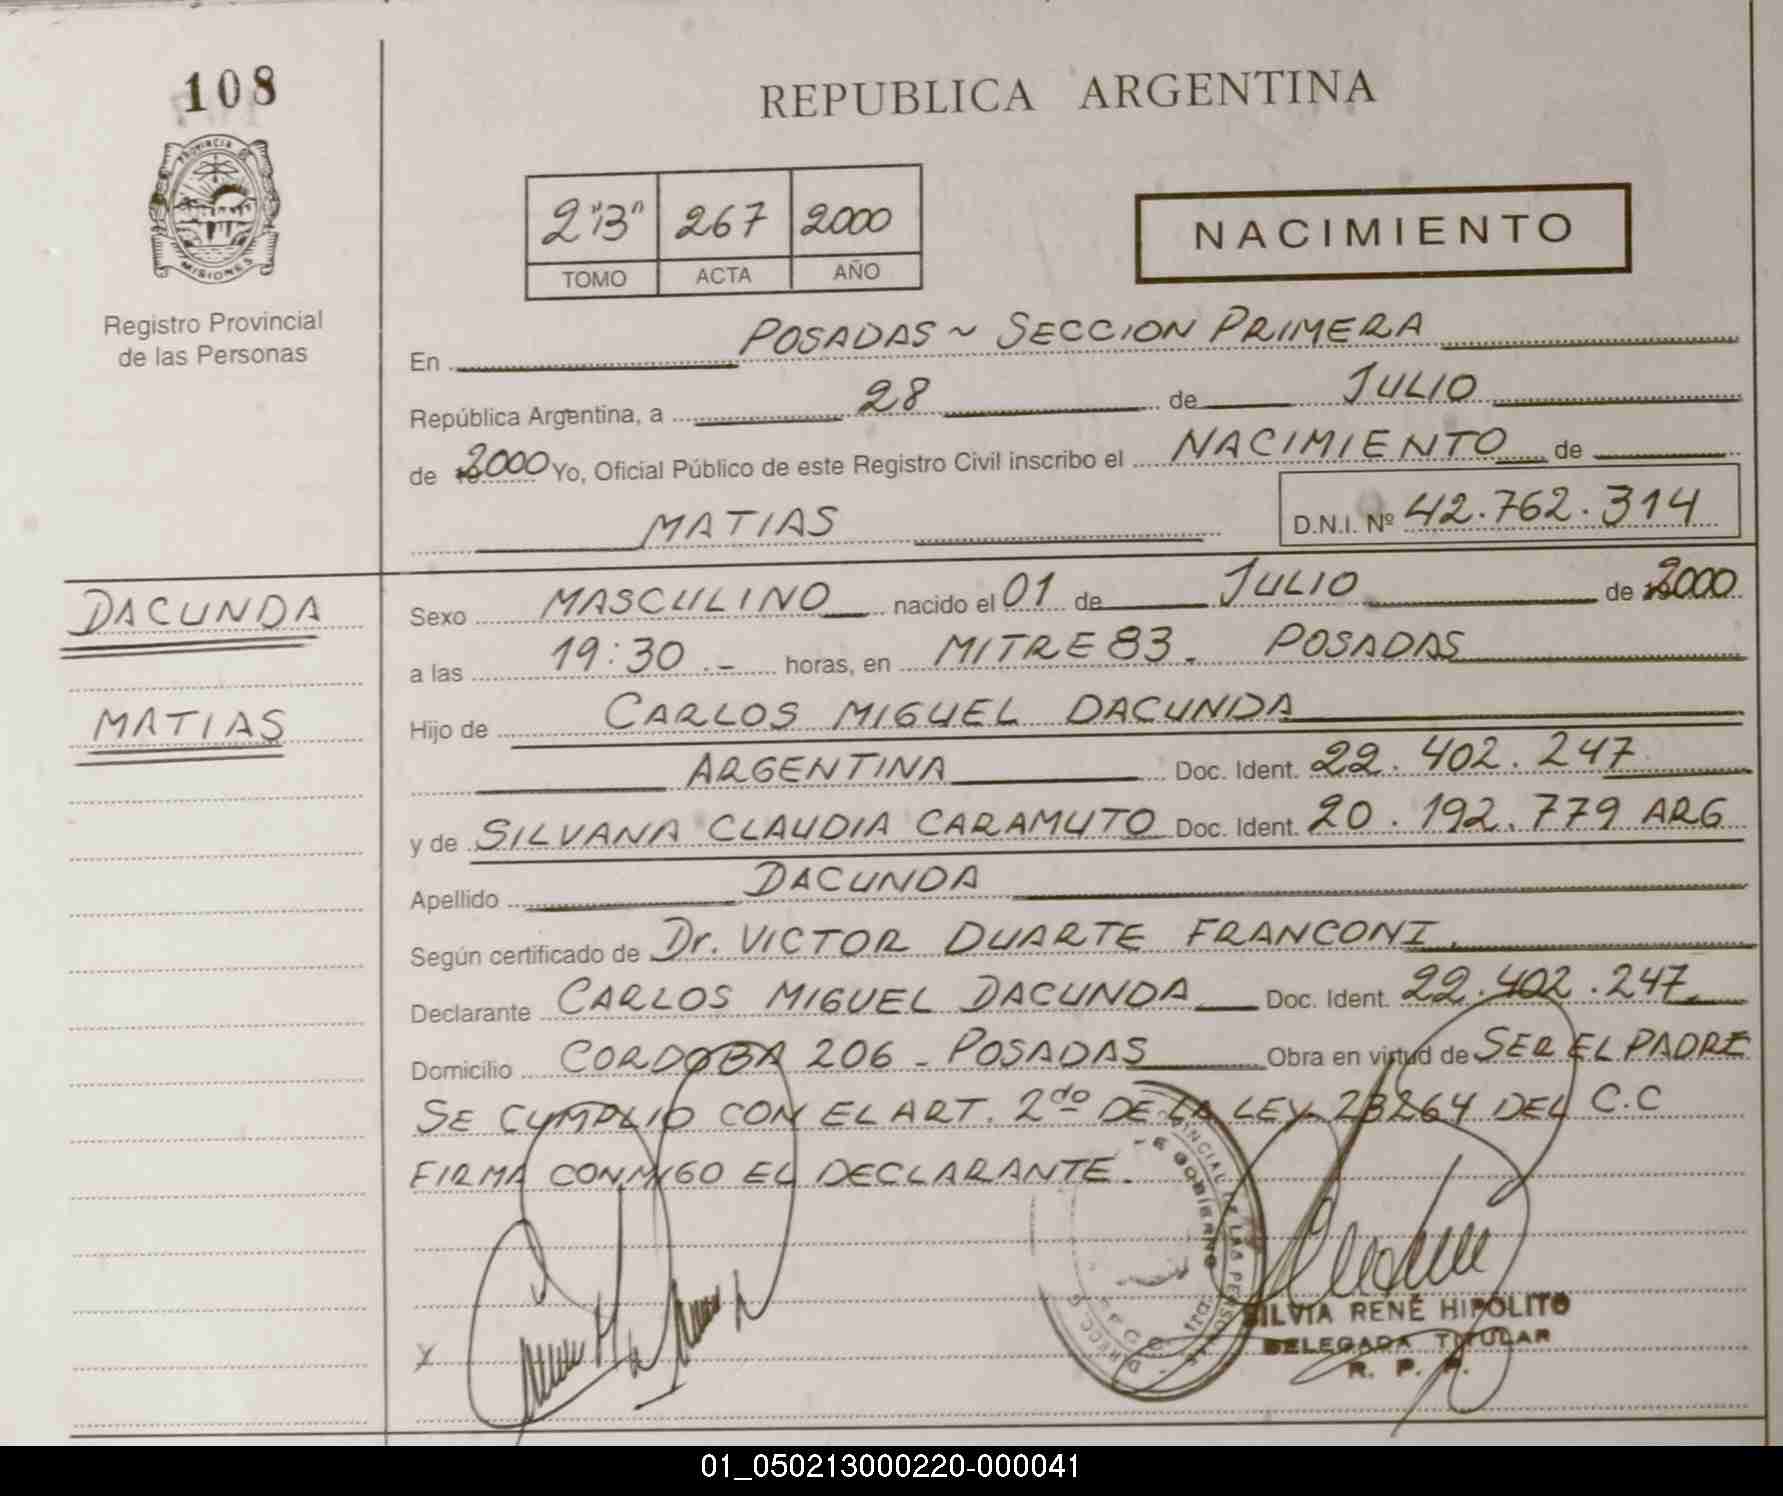 108
REPUBLICA ARGENTINA
PROVINCIA DE
MISIONES
Registro Provincial
de las Personas
2 "B" 267 2000
TOMO ACTA AÑO
NACIMIENTO
En POSADAS ~ SECCION PRIMERA
República Argentina, a 28 de JULIO
de 2000 Yo, Oficial Público de este Registro Civil inscribo el NACIMIENTO de
MATIAS D.N.I. Nº 42.762.314
DACUNDA
MATIAS
Sexo MASCULINO nacido el 01 de JULIO de 2000
a las 19:30.- horas, en MITRE 83. POSADAS
Hijo de CARLOS MIGUEL DACUNDA
ARGENTINA Doc. Ident. 22.402.247
y de SILVANA CLAUDIA CARAMUTO Doc. Ident. 20.192.779 ARG
Apellido DACUNDA
Según certificado de Dr. VICTOR DUARTE FRANCONI.
Declarante CARLOS MIGUEL DACUNDA Doc. Ident. 22.402.247.
Domicilio CORDOBA 206 - POSADAS Obra en virtud de SER EL PADRE
SE CUMPLIO CON EL ART. 2do DE LA LEY 23264 DEL C.C
FIRMA CONMIGO EL DECLARANTE.
SILVIA RENÉ HIPOLITO
DELEGADA TITULAR
R. P. P.
01_050213000220-000041